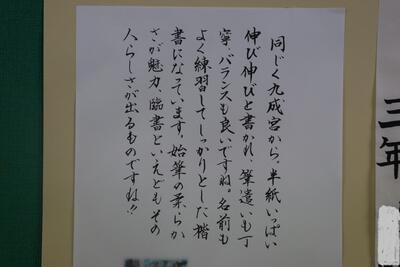 同じく九成宮から、半紙いっぱい
伸び伸びと書かれ、筆遣いも丁
寧、バランスも良いですね。名前も
よく練習してしっかりとした楷
書になっています。始筆の柔らか
さが魅力、臨書といえどもその
人らしさが出るものですね!!
三年